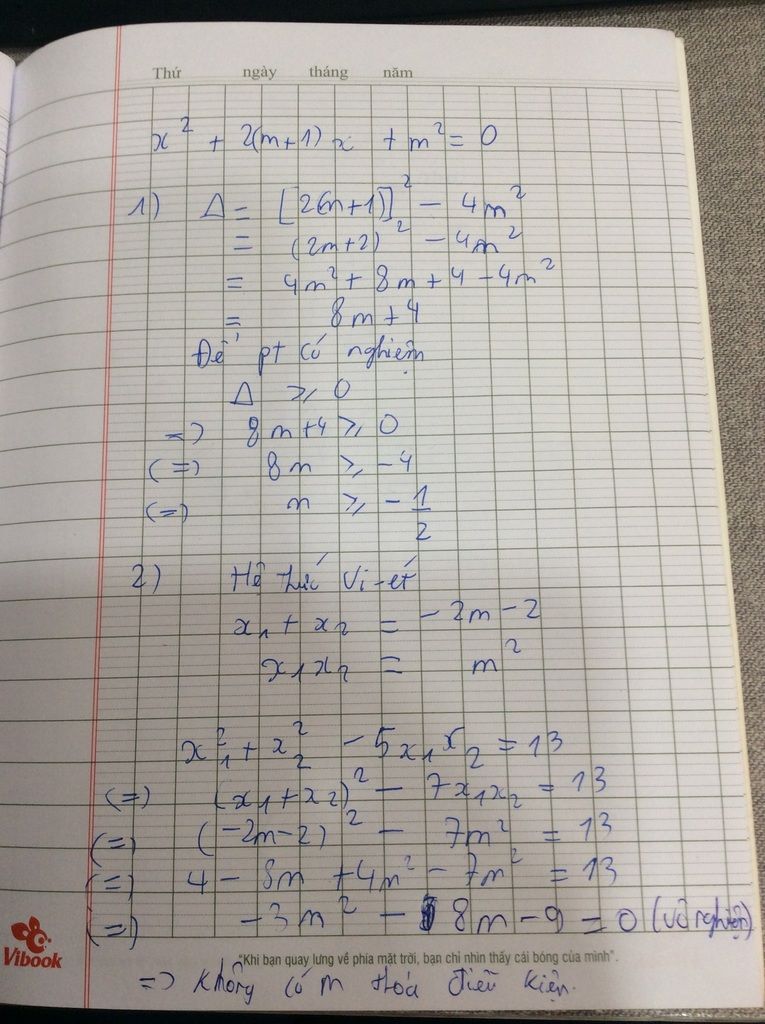 Thứ ngày tháng năm
x² + 2(m+1)x + m² = 0
1) Δ = [2(m+1)]² - 4m²
= (2m+2)² - 4m²
= 4m² + 8m + 4 - 4m²
= 8m + 4
Để pt có nghiệm
Δ ⩾ 0
=> 8m+4 ⩾ 0
(=) 8m ⩾ -4
(=) m ⩾ -1/2
2) Hệ thức Vi-ét
x₁ + x₂ = -2m - 2
x₁x₂ = m²
x₁² + x₂² - 5x₁x₂ = 13
(=) (x₁+x₂)² - 7x₁x₂ = 13
(=) (-2m-2)² - 7m² = 13
(=) 4 - 8m + 4m² - 7m² = 13
(=) -3m² - 8m - 9 = 0 (vô nghiệm)
Vibook
"Khi bạn quay lưng về phía mặt trời, bạn chỉ nhìn thấy cái bóng của mình".
=> Không có m thoả điều kiện.